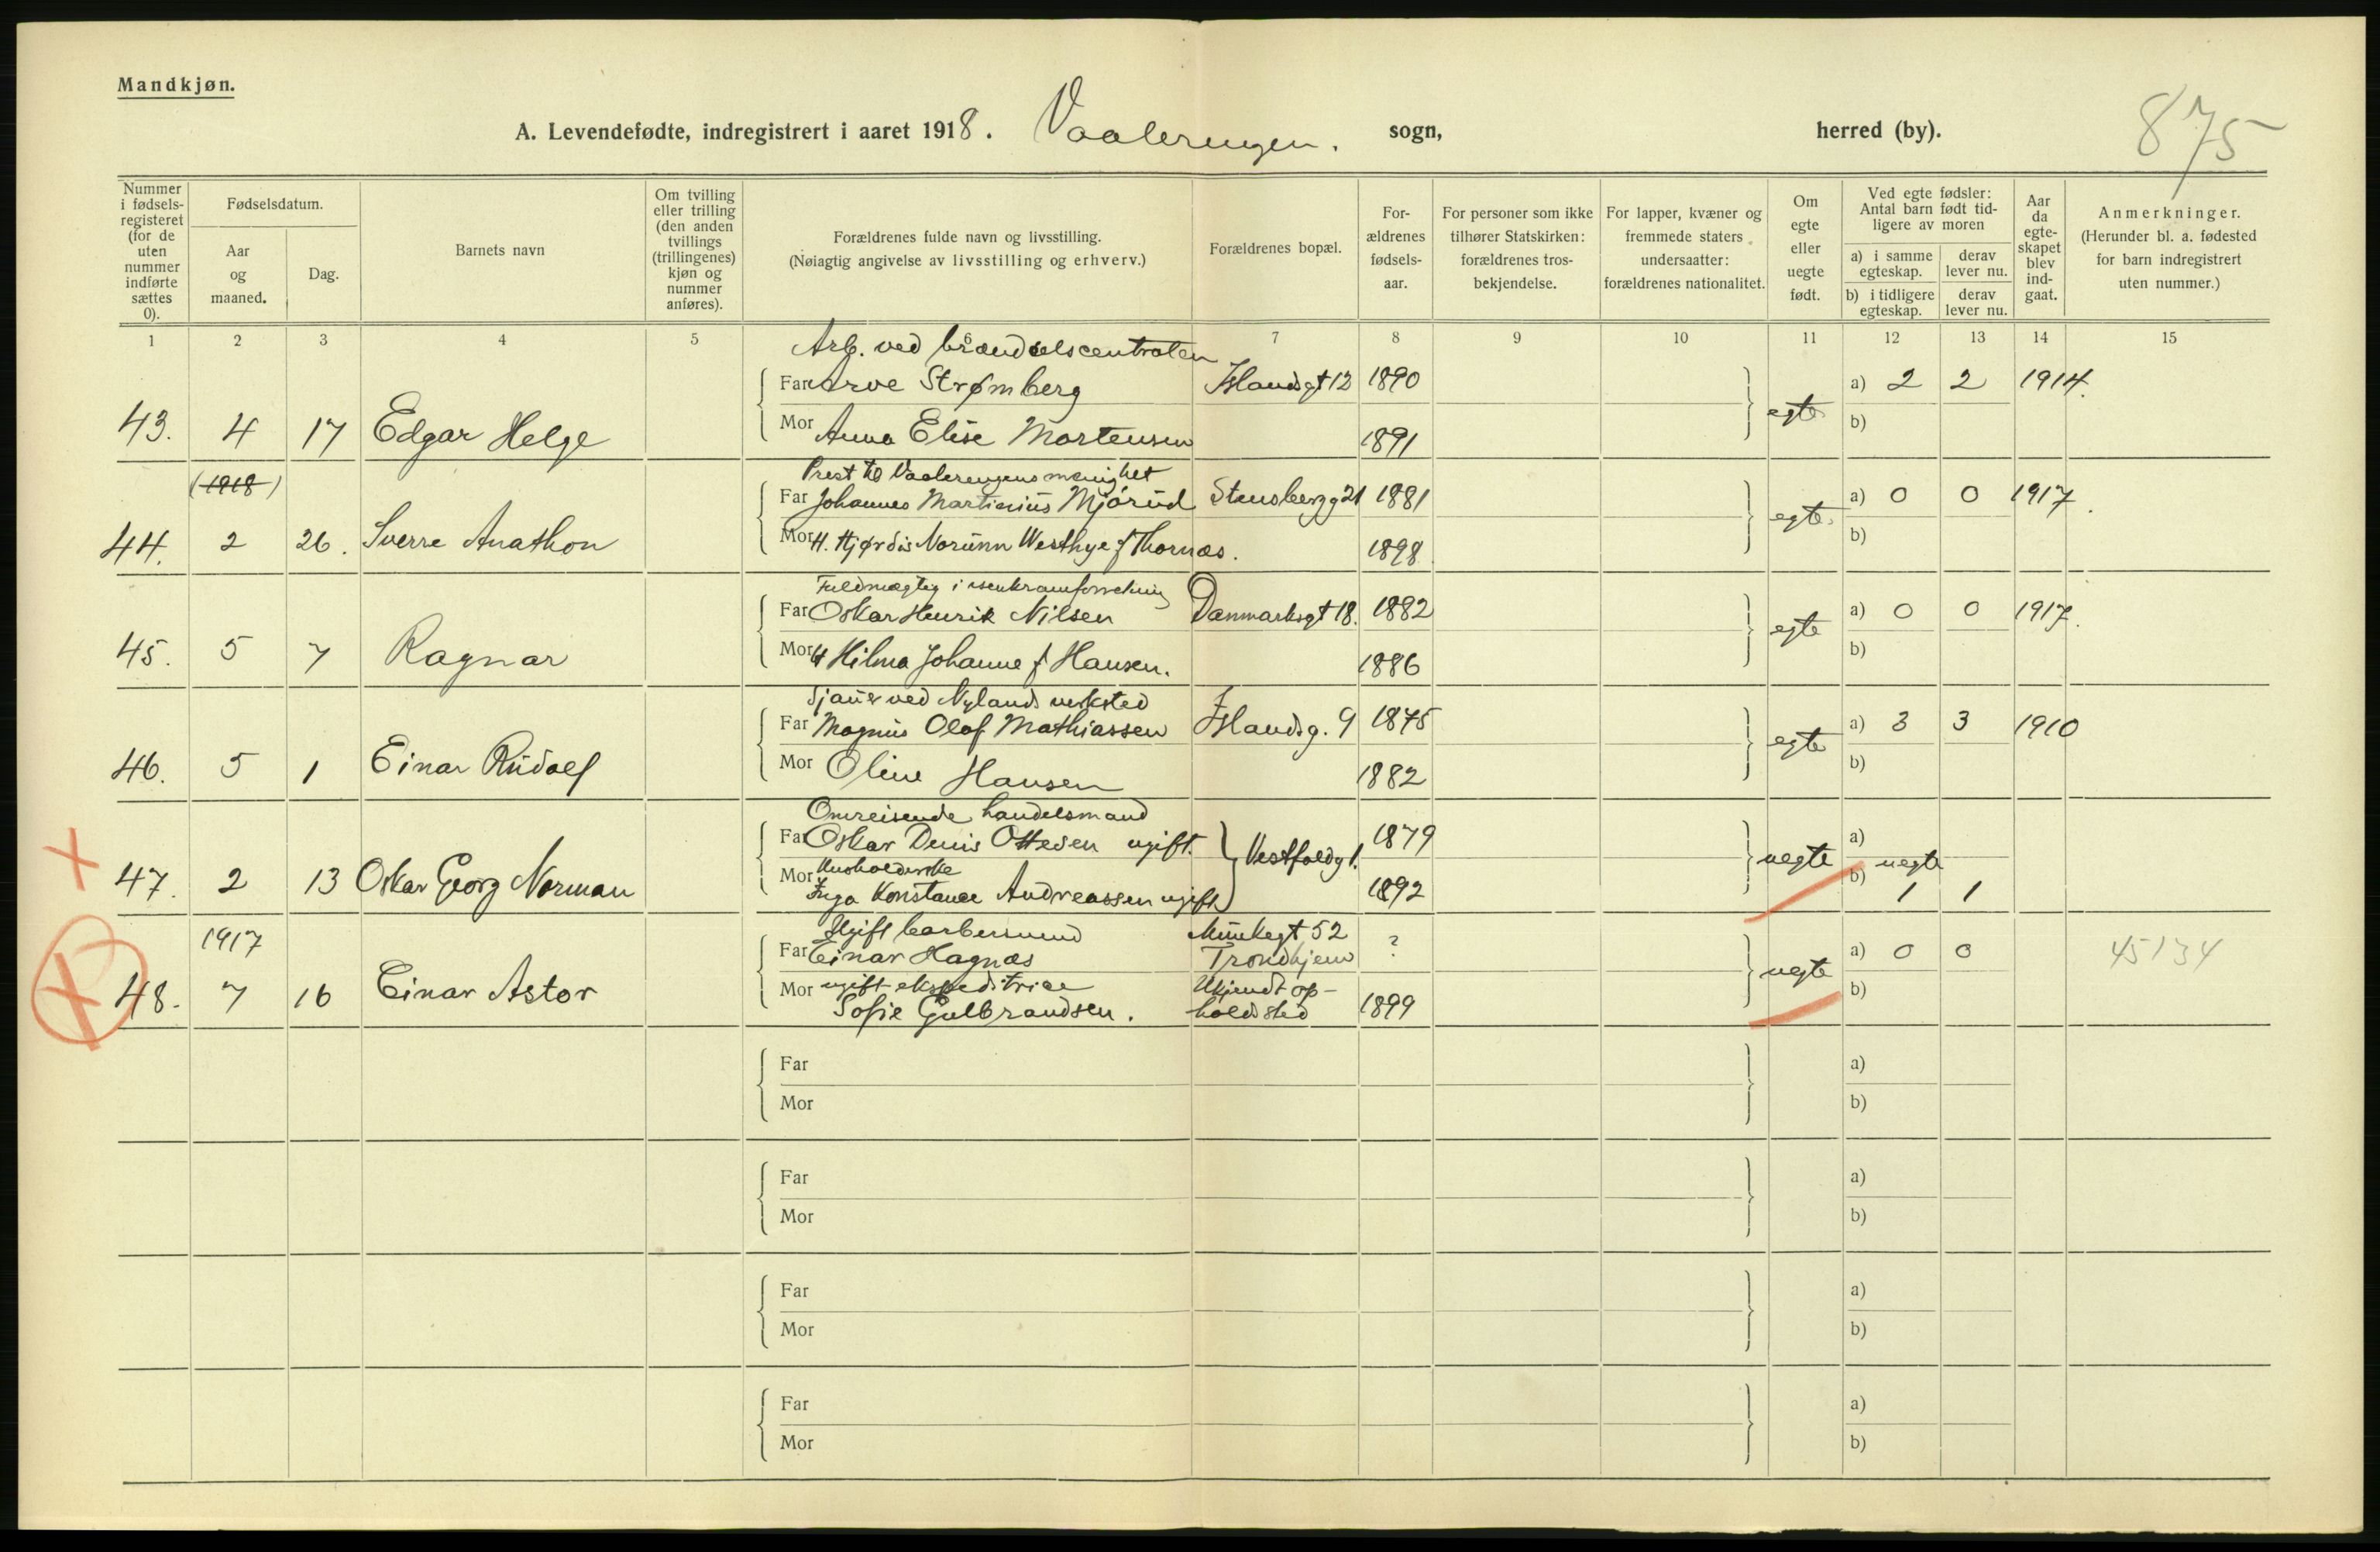 Mandkjøn.
A. Levendefødte, indregistrert i aaret 1918. Vaalerengen. sogn, herred (by).
875
Nummer i fødsels-registeret (for de uten nummer indførte sættes 0).
Fødselsdatum.
Aar og maaned.
Dag.
Barnets navn
Om tvilling eller trilling (den anden tvillings (trillingenes) kjøn og nummer anføres).
Forældrenes fulde navn og livsstilling.
(Nøiagtig angivelse av livsstilling og erhverv.)
Forældrenes bopæl.
For-ældrenes fødsels-aar.
For personer som ikke tilhører Statskirken: forældrenes tros-bekjendelse.
For lapper, kvæner og fremmede staters undersaatter: forældrenes nationalitet.
Om egte eller uegte født.
Ved egte fødsler: Antal barn født tid-ligere av moren
a) i samme egteskap.
derav lever nu.
b) i tidligere egteskap.
derav lever nu.
Aar da egte-skapet blev ind-gaat.
Anmerkninger.
(Herunder bl. a. fødested for barn indregistrert uten nummer.)
1 2 3 4 5 7 8 9 10 11 12 13 14 15
Arb. ved brændselscentralen
Far Arve Strømberg Islandsgt 12 1890 a) 2 2 1914.
43. 4 17 Edgar Helge Mor Anna Elise Mortensen 1891 egte b)
(1918)
Prest til Vaalerengens menighet
Far Johannes Martinius Mjørud Stensbergg 21 1881 a) 0 0 1917.
44. 2 26. Sverre Anathon Mor H. Hjørdis Norunn Westhye f Thornæs. 1898 egte b)
Fuldmægtig i isenkramforretning
Far Oskar Henrik Nilsen Danmarksgt 18. 1882 a) 0 0 1917.
45. 5 7 Ragnar Mor H Hilma Johanne f Hansen. 1886 egte b)
Sjauer ved Nylands verksted
Far Magnus Olaf Mathiassen Islandsg. 9 1875 a) 3 3 1910
46. 5 1 Einar Rudolf Mor Oline Hansen 1882 egte b)
Omreisende handelsmand
Far Oskar Denis Ottesen ugift. Vestfoldg 1. 1879 a)
x 47. 2 13 Oskar Georg Norman Mor Husholderske uegte b) uegte
Inga Konstance Andreassen ugift 1892 1 1
1917
Ugift barbersvend Munkegt 52
Far Einar Hagnæs Trondhjem ? a) 0 0 45134
x 48. 7 16 Einar Astor Mor ugift ekspeditrice Ukjendt op- uegte b)
Sofie Gulbrandsen. holdssted 1899
Far a)
Mor b)
Far a)
Mor b)
Far a)
Mor b)
Far a)
Mor b)